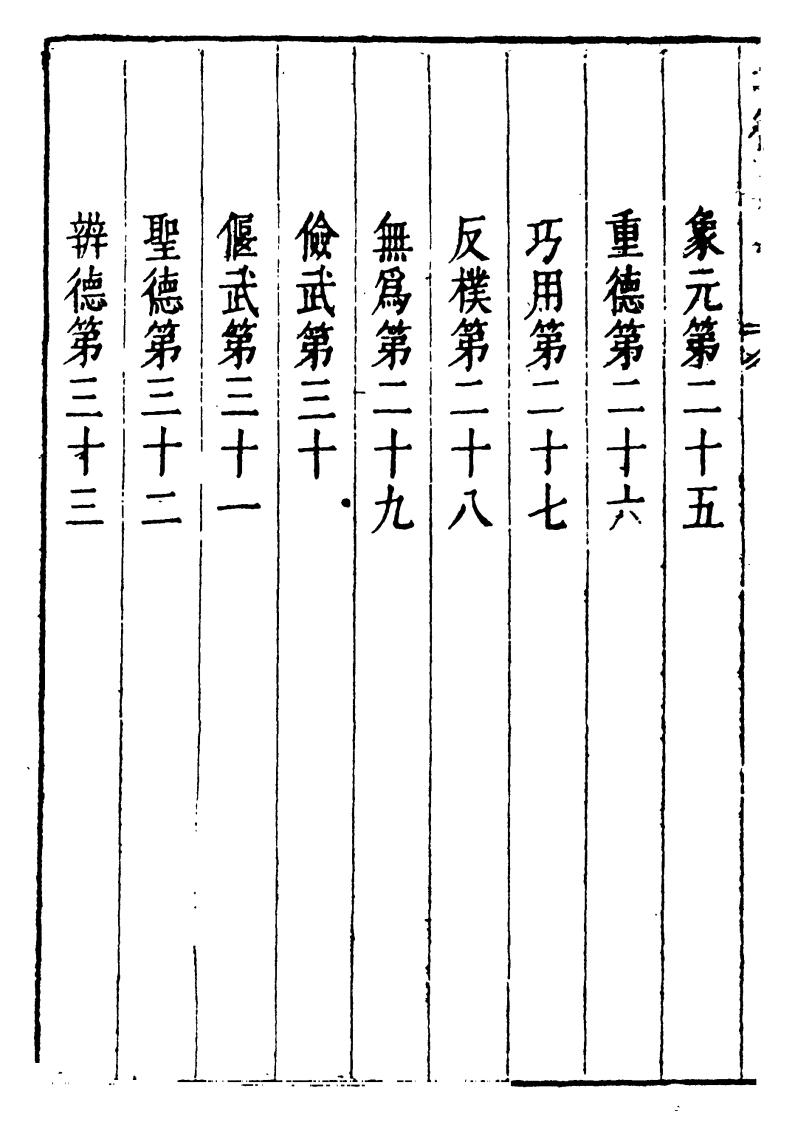 象元第二十五
重德第二十六
巧用第二十七
反樸第二十八
無爲第二十九
儉武第三十
偃武第三十一
聖德第三十二
辨德第三十三